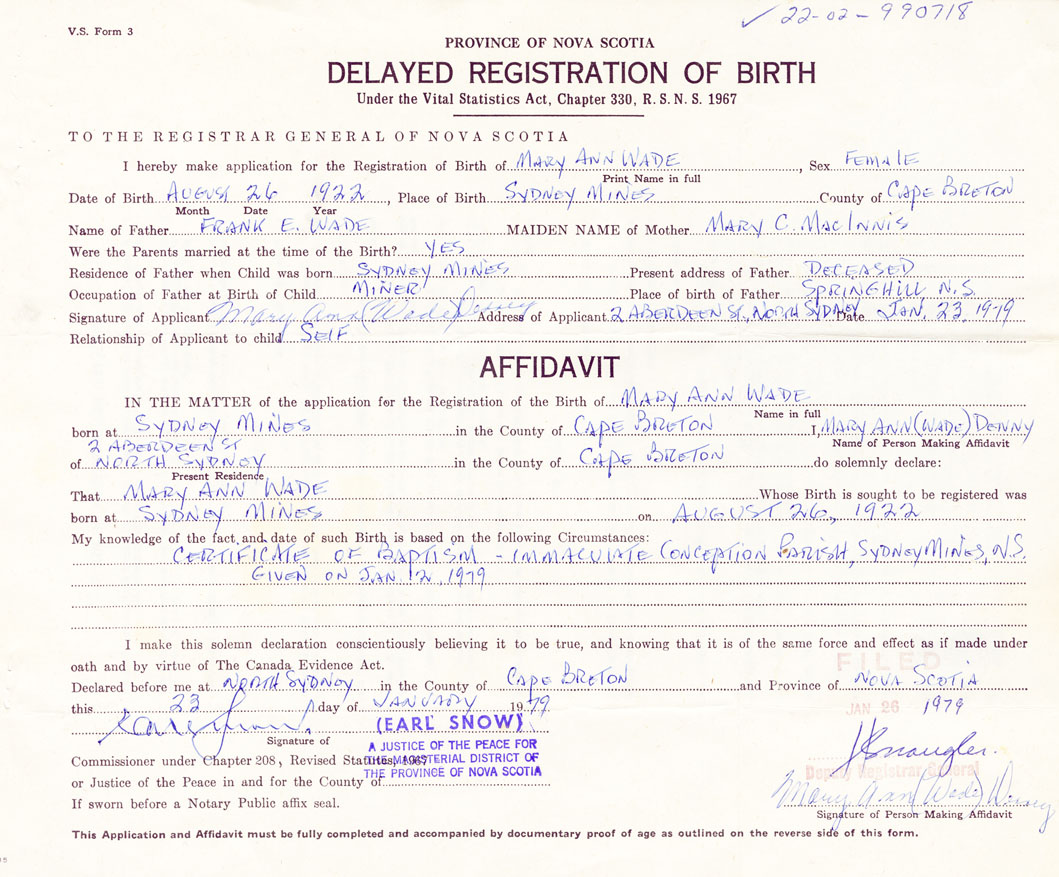 ✓ 22-02-990718
V.S. Form 3
PROVINCE OF NOVA SCOTIA
DELAYED REGISTRATION OF BIRTH
Under the Vital Statistics Act, Chapter 330, R.S.N.S. 1967
TO THE REGISTRAR GENERAL OF NOVA SCOTIA
I hereby make application for the Registration of Birth of MARY ANN WADE, Sex FEMALE
Print Name in full
Date of Birth AUGUST 26 1922, Place of Birth SYDNEY MINES County of CAPE BRETON
Month Date Year
Name of Father FRANK E. WADE MAIDEN NAME of Mother MARY C. MACINNIS
Were the Parents married at the time of the Birth? YES
Residence of Father when Child was born SYDNEY MINES Present address of Father DECEASED
Occupation of Father at Birth of Child MINER Place of birth of Father SPRINGHILL N.S.
Signature of Applicant Mary Ann (Wade) Denny Address of Applicant 2 ABERDEEN ST., NORTH SYDNEY Date JAN. 23, 1979
Relationship of Applicant to child SELF
AFFIDAVIT
IN THE MATTER of the application for the Registration of the Birth of MARY ANN WADE
Name in full
born at SYDNEY MINES in the County of CAPE BRETON I, MARY ANN (WADE) DENNY
Name of Person Making Affidavit
2 ABERDEEN ST
of NORTH SYDNEY in the County of CAPE BRETON do solemnly declare:
Present Residence
That MARY ANN WADE Whose Birth is sought to be registered was
born at SYDNEY MINES on AUGUST 26, 1922
My knowledge of the fact and date of such Birth is based on the following Circumstances:
CERTIFICATE OF BAPTISM - IMMACULATE CONCEPTION PARISH, SYDNEY MINES, N.S.
GIVEN ON JAN. 12, 1979
I make this solemn declaration conscientiously believing it to be true, and knowing that it is of the same force and effect as if made under
oath and by virtue of The Canada Evidence Act.
FILED
Declared before me at NORTH SYDNEY in the County of CAPE BRETON and Province of NOVA SCOTIA
this 23 day of JANUARY 1979
JAN 26 1979
(EARL SNOW)
Signature of
A JUSTICE OF THE PEACE FOR
Commissioner under Chapter 208, Revised Statutes, 1967
THE MAGISTERIAL DISTRICT OF
THE PROVINCE OF NOVA SCOTIA
or Justice of the Peace in and for the County of
Deputy Registrar General
Mary Ann (Wade) Denny
If sworn before a Notary Public affix seal.
Signature of Person Making Affidavit
This Application and Affidavit must be fully completed and accompanied by documentary proof of age as outlined on the reverse side of this form.